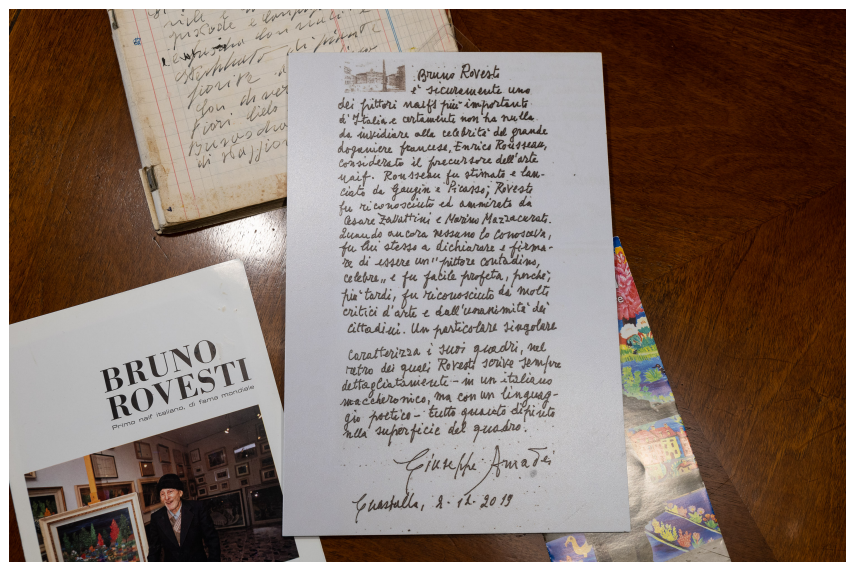 piscode e
di
fiorite
Fiori cielo
di
Bruno Rovesti
e' sicuramente uno
dei pittori naifs piu' importante
d'Italia e certamente non ha nulla
da invidiare alla celebrita' del grande
doganiere francese, Enrico Rousseau,
considerato il precursore dell'arte
naif. Rousseau fu stimato e lan-
ciato da Gaugin e Picasso; Rovesti
fu riconosciuto ed ammirato da
Cesare Zavattini e Marino Mazzacurati.
Quando ancora nessuno lo conosceva,
fu lui stesso a dichiarare e firma-
re di essere un "pittore contadino,
celebre" e fu facile profeta, perché,
piu' tardi, fu riconosciuto da molti
critici d'arte e dall'unanimità dei
cittadini. Un particolare singolare
caratterizza i suoi quadri, nel
retro dei quali Rovesti scrive sempre
dettagliatamente - in un italiano
maccheronico, ma con un linguag-
gio poetico - tutto quanto dipinto
nella superficie del quadro.
Giuseppe Amadei
Guastalla, 2.11.2019
BRUNO
ROVESTI
Primo naïf italiano, di fama mondiale